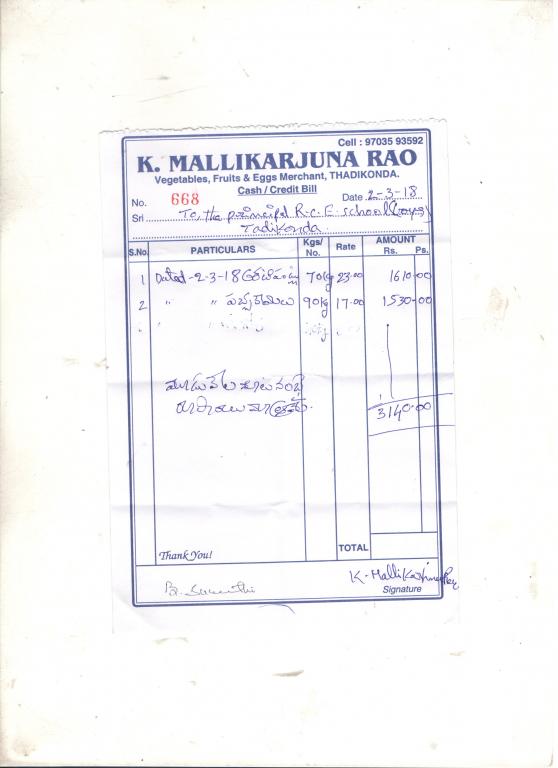 Cell : 97035 93592
K. MALLIKARJUNA RAO
Vegetables, Fruits & Eggs Merchant, THADIKONDA.
Cash / Credit Bill
No. 668 Date 2-3-18
Sri To, the principal R.C.E. school (Boys)
Tadikonda.
S.No. PARTICULARS Kgs/No. Rate AMOUNT Rs. Ps.
1 Dated -2-3-18 70kg 23.00 1610-00
2 " " 90kg 17.00 1530-00
మూడువేల నూటనలభై
రూపాయలు మాత్రమే.
3140-00
Thank You!
TOTAL
K. Mallikarjuna Rao
Signature